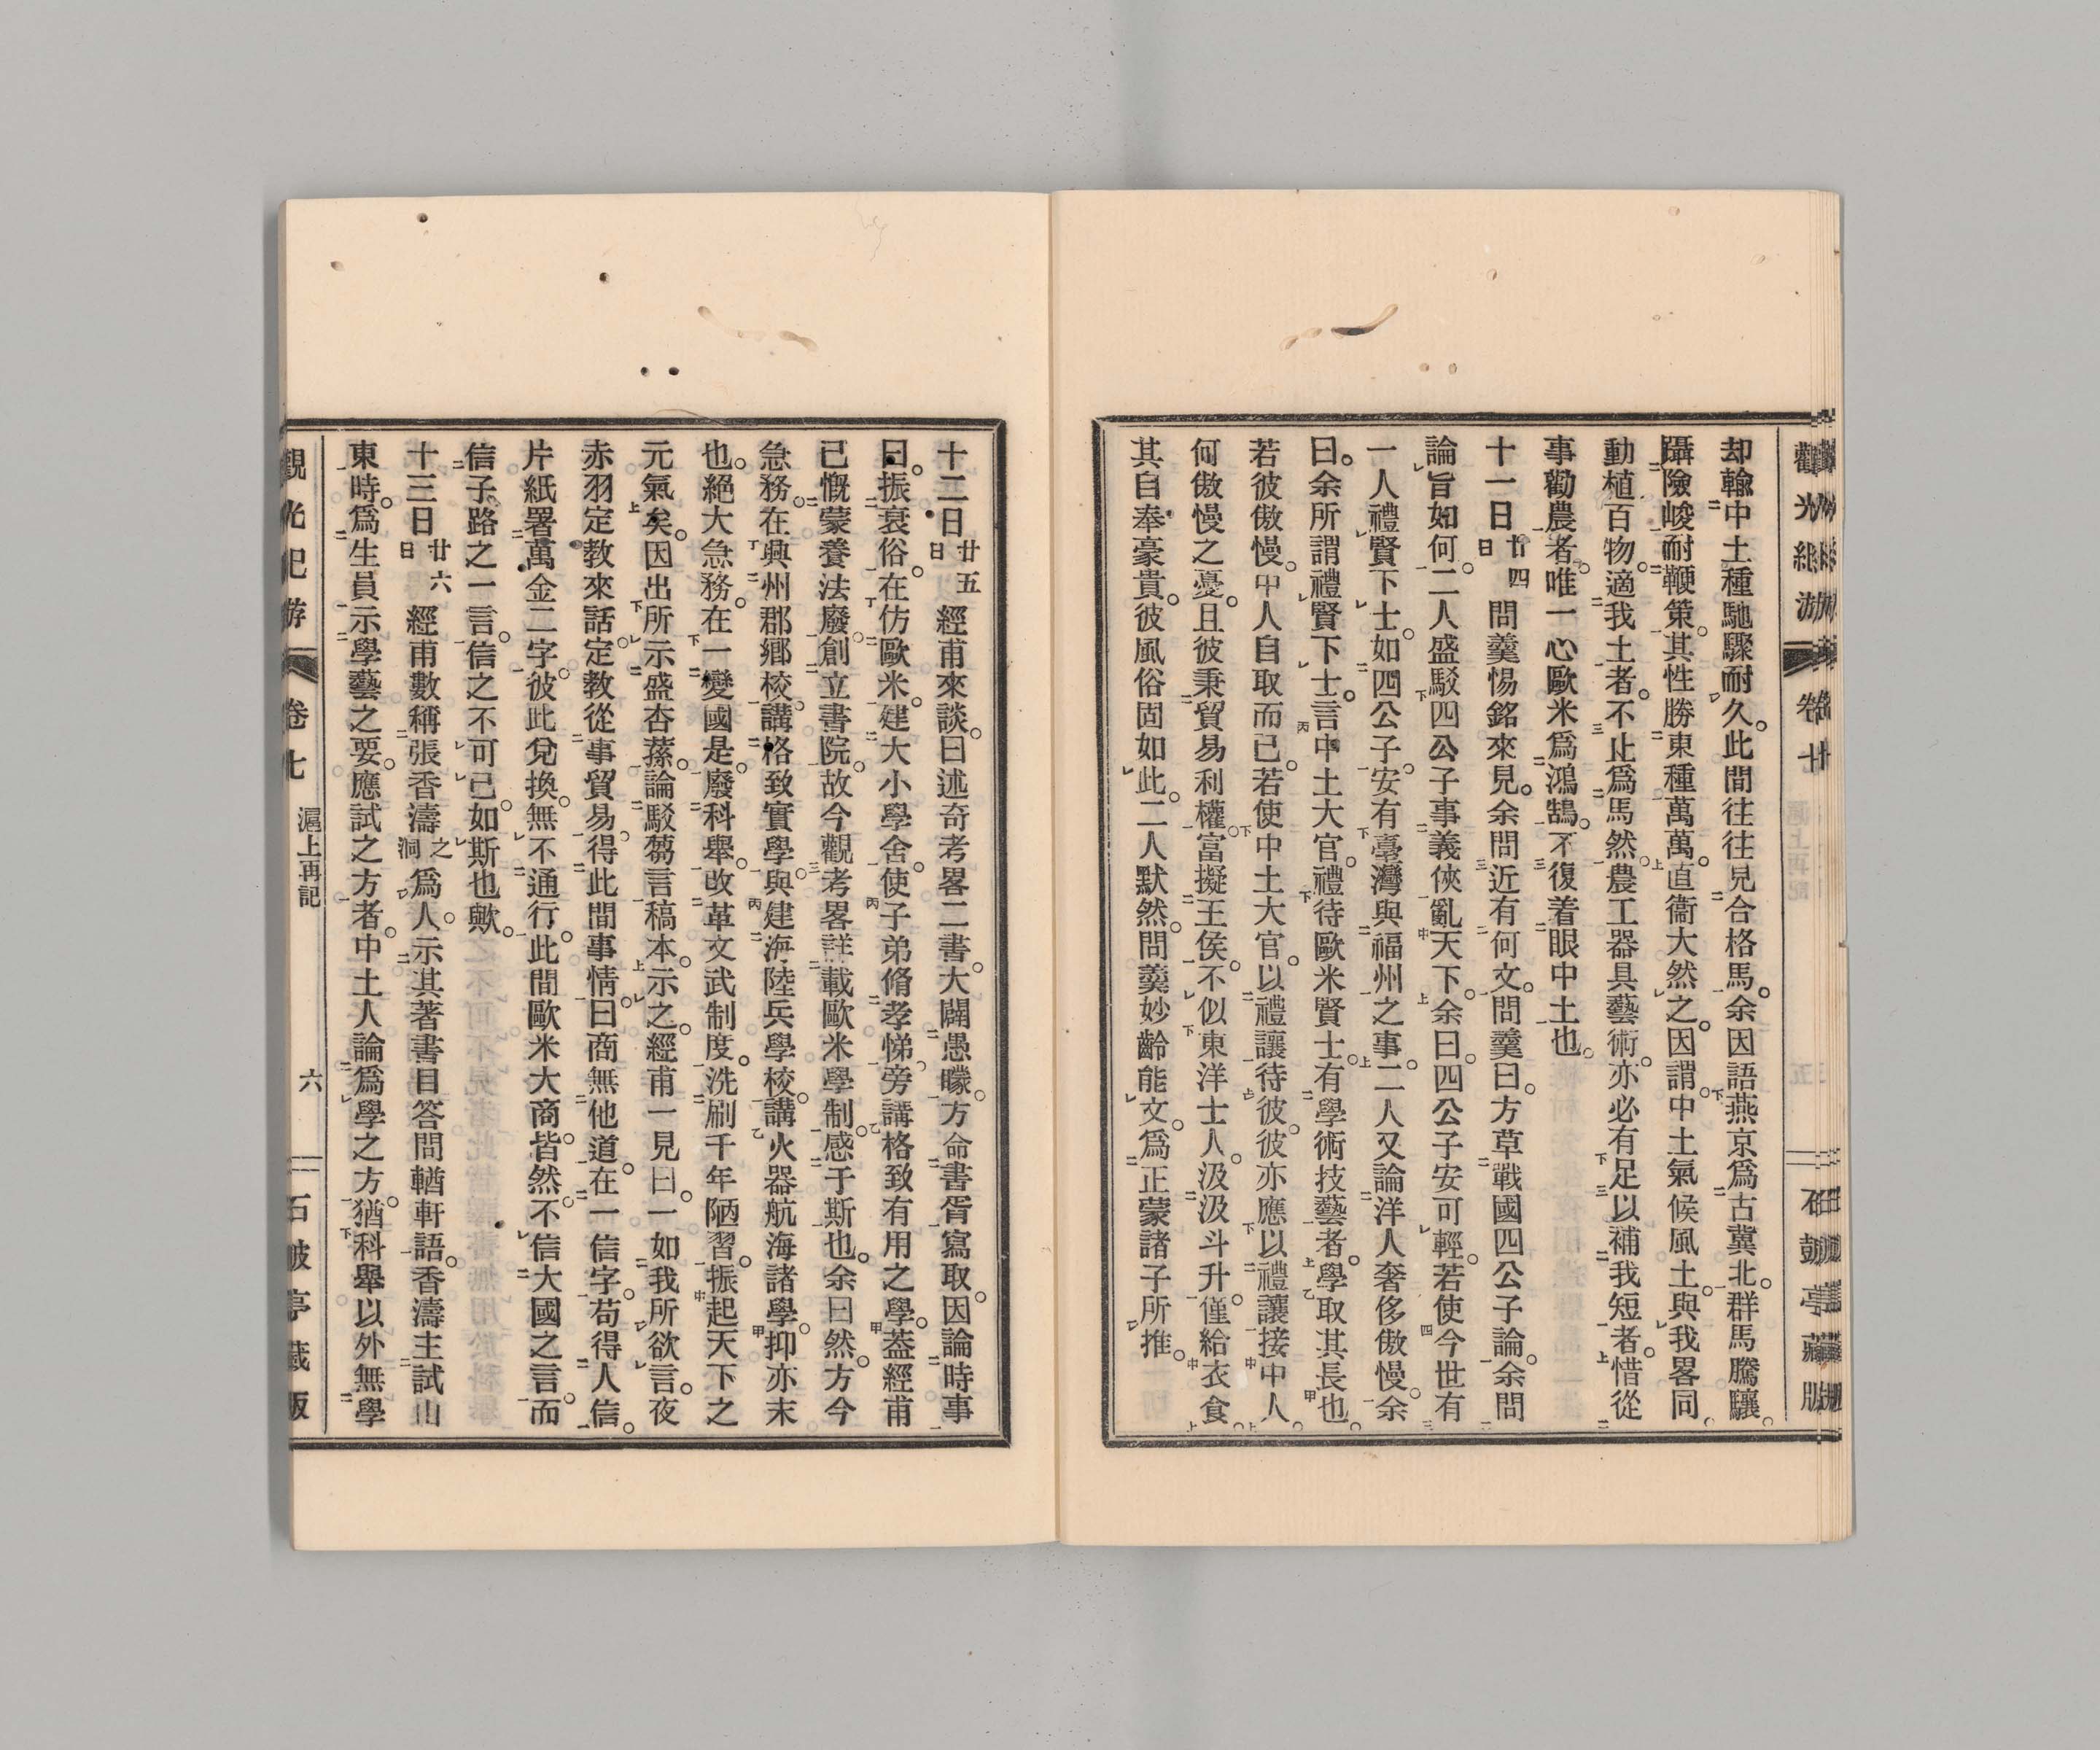 却輸中土種馳驟耐久。此間往往見合格馬。余因語燕京爲古冀北。群馬騰驤。
躡險峻耐鞭策。其性勝東種萬萬。直衞大然之。因謂。中土氣候風土。與我畧同。
動植百物。適我土者。不止爲馬然。農工器具藝術。亦必有足以補我短者。惜從
事勸農者。唯一心歐米爲鴻鵠。不復着眼中土也。
十一日廿四日問羹惕銘來見。余問近有何文。問羹曰。方草戰國四公子論。余問
論旨如何。二人盛駁四公子事義俠亂天下。余曰。四公子安可輕。若使今世有
一人禮賢下士。如四公子。安有臺灣與福州之事。二人又論洋人奢侈傲慢。余
曰。余所謂禮賢下士。言中土大官。禮待歐米賢士。有學術技藝者。學取其長也。
若彼傲慢。中人自取而已。若使中土大官。以禮讓待彼。彼亦應以禮讓接中人。
何傲慢之憂。且彼秉貿易利權。富擬王侯。不似東洋士人。汲汲斗升。僅給衣食。
其自奉豪貴。彼風俗固如此。二人默然。問羹妙齡能文。爲正蒙諸子所推。
十二日廿五日經甫來談。曰述奇考畧二書。大闢愚矇。方命書胥寫取。因論時事
曰。振衰俗。在仿歐米。建大小學舍。使子弟脩孝悌。旁講格致有用之學。葢經甫
已慨蒙養法廢。創立書院。故今觀考畧詳載歐米學制。感于斯也。余曰然。方今
急務。在興州郡鄉校。講格致實學。與建海陸兵學校。講火器航海諸學。抑亦末
也。絕大急務。在一變國是。廢科舉。改革文武制度。洗刷千年陋習。振起天下之
元氣矣。因出所示盛杏蓀。論駁芻言稿本。示之。經甫一見曰。一如我所欲言。夜
赤羽定教來話。定教從事貿易。得此間事情。曰商無他道。在一信字。苟得人信。
片紙署萬金二字。彼此兌換。無不通行。此間歐米大商。皆然。不信大國之言。而
信子路之一言。信之不可已。如斯也歟。
十三日廿六日經甫數稱張香濤之洞爲人。示其著書目答問輶軒語。香濤主試山
東時。爲生員示學藝之要。應試之方者。中土人論爲學之方。猶科舉以外無學
觀光紀游
卷七
滬上再記
六